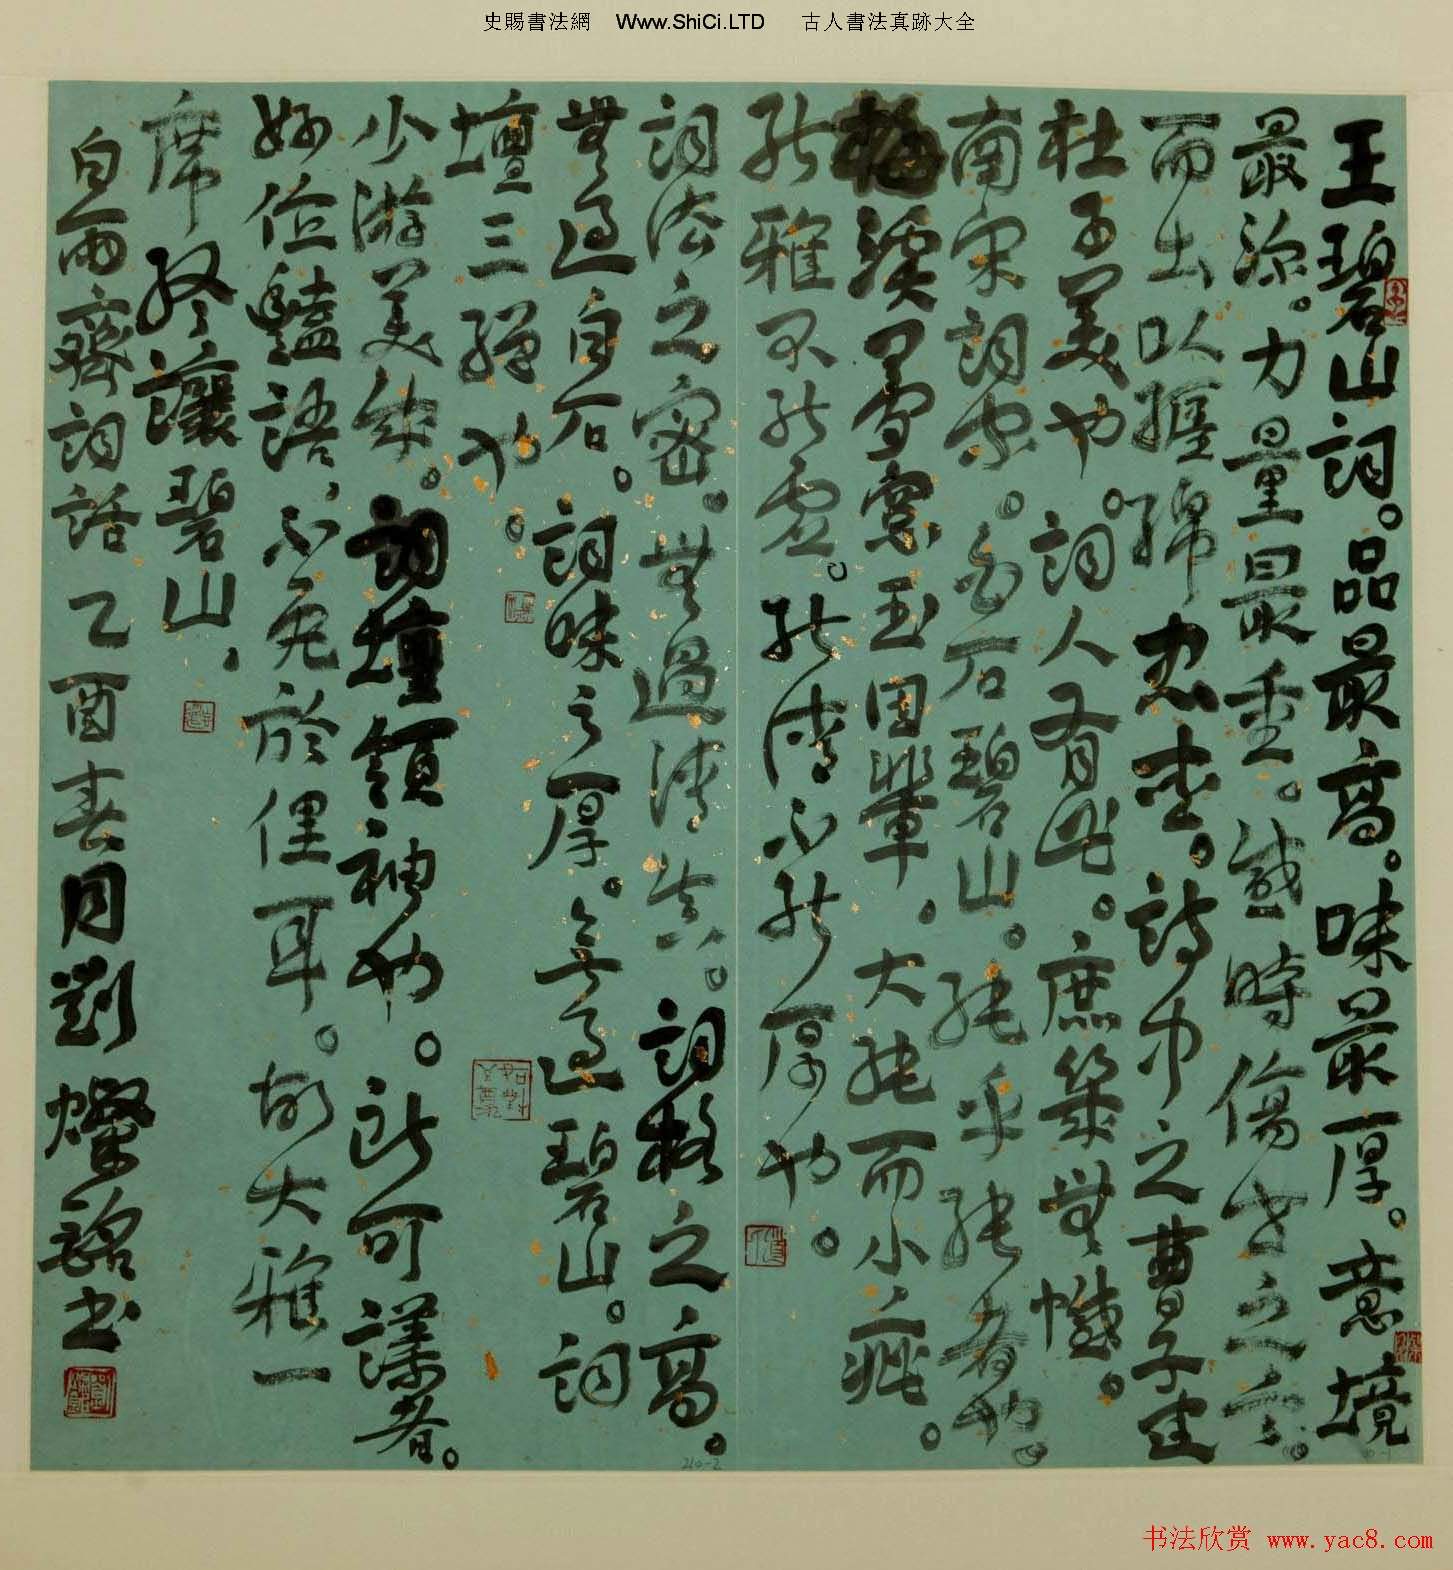 史賜書法網 Www.ShiCi.LTD 古人書法真跡大全
王碧山詞。品最高。味最厚。意境
最深。力量最重。感時傷世之言。
而出以纏綿忠愛。詩中之曹子建
杜子美也。詞人有此。庶幾無憾。
南宋詞家。白石碧山。純乎純者也。
梅溪夢窗玉田輩。大純而小疵。
能雅不能虛。能清不能厚也。
詞法之密。無過清真。詞格之高。
無過白石。詞味之厚。無過碧山。詞
壇三絕也。
少游美成。詞壇領袖也。所可議者。
好作豔語、不免於俚耳。故大雅一
席終讓碧山、
白雨齋詞話乙酉春月劉燦銘書
210-2
书法欣赏 www.yac8.com